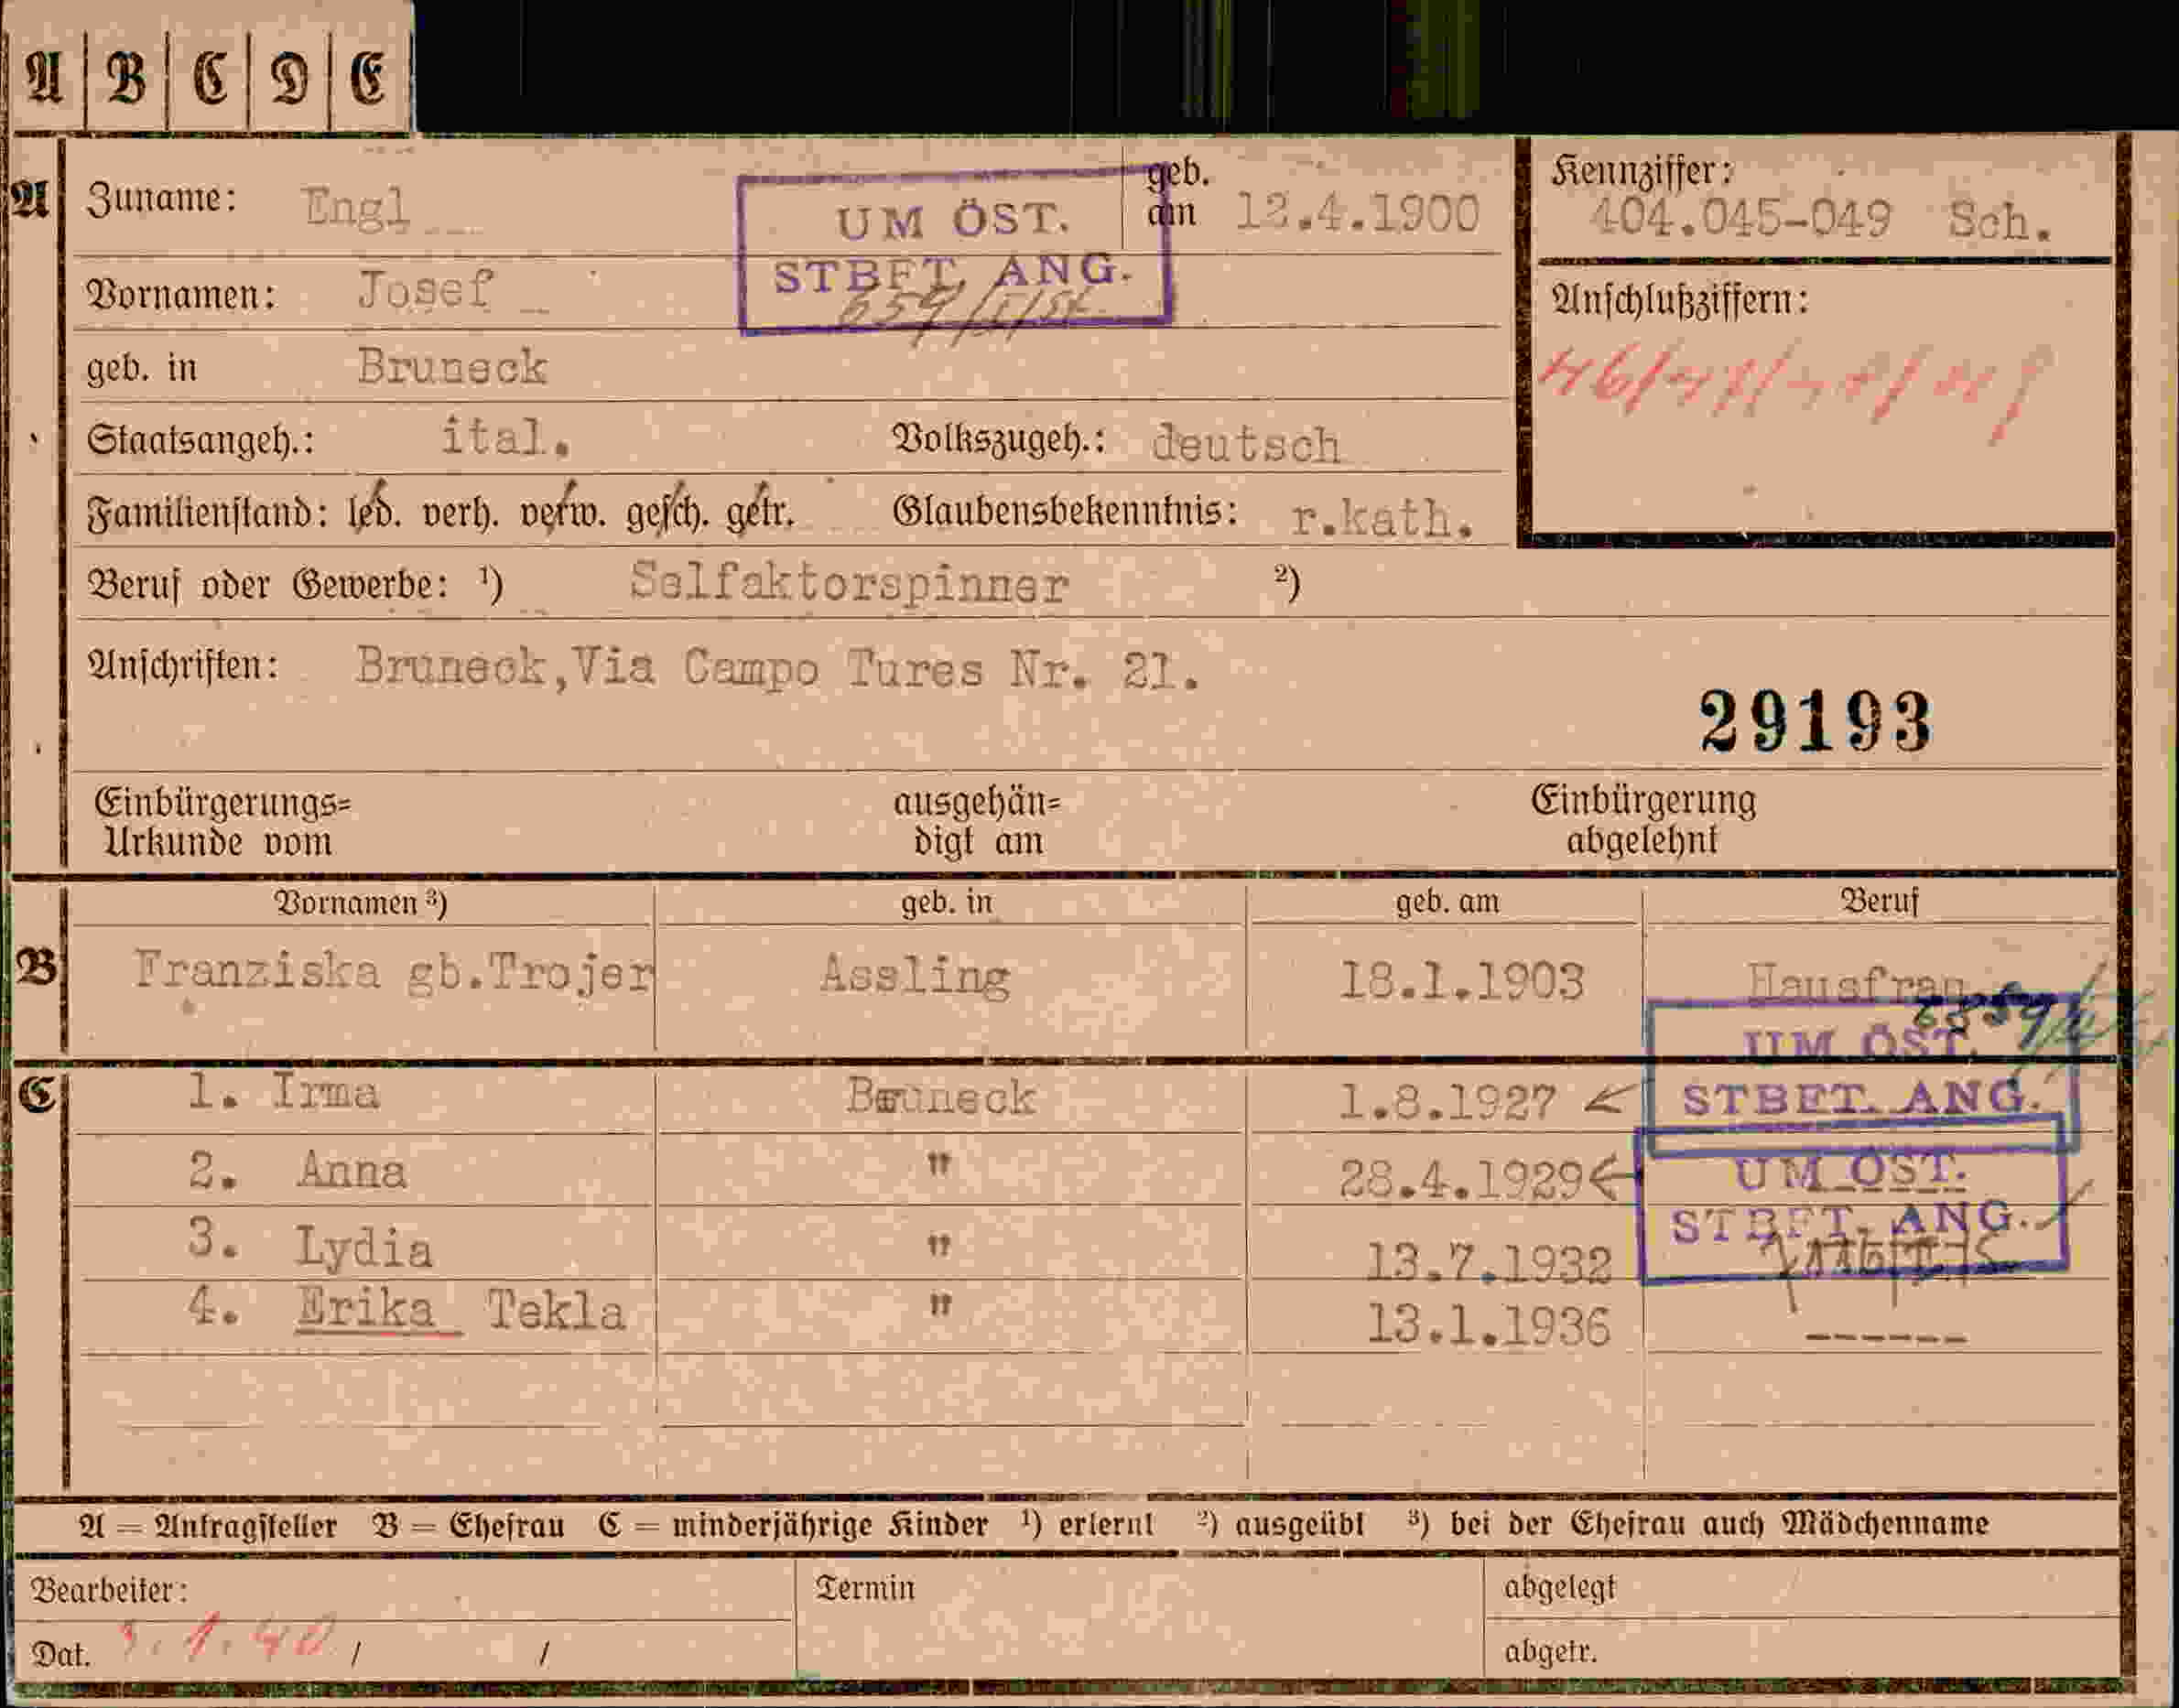 A B C D E
A Zuname: Engl geb. am 12.4.1900 Kennziffer: 404.045-049 Sch.
UM ÖST.
STBET. ANG.
Vornamen: Josef Anschlußziffern:
geb. in Bruneck
Staatsangeh.: ital. Volkszugeh.: deutsch
Familienstand: led. verh. verw. gesch. getr. Glaubensbekenntnis: r.kath.
Beruf oder Gewerbe: ¹) Selfaktorspinner ²)
Anschriften: Bruneck,Via Campo Tures Nr. 21.
29193
Einbürgerungs= ausgehän= Einbürgerung
Urkunde vom digt am abgelehnt
Vornamen ³) geb. in geb. am Beruf
B Franziska gb.Trojer Assling 18.1.1903 Hausfrau
UM ÖST.
C 1. Irma Bruneck 1.8.1927 STBET. ANG.
2. Anna " 28.4.1929 UM ÖST.
3. Lydia " 13.7.1932 STBET. ANG.
4. Erika Tekla " 13.1.1936 ------
A = Antragsteller B = Ehefrau C = minderjährige Kinder ¹) erlernt ²) ausgeübt ³) bei der Ehefrau auch Mädchenname
Bearbeiter: Termin abgelegt
Dat. / / abgetr.